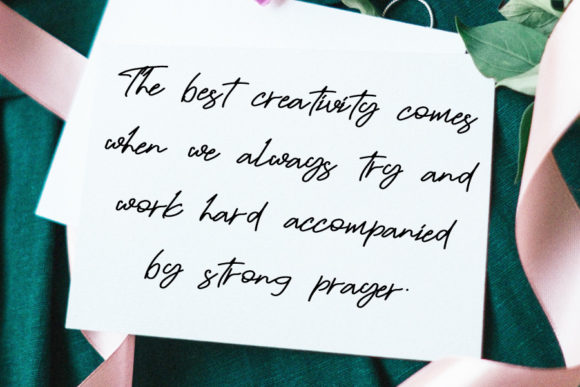 The best creativity comes
when we always try and
work hard accompanied
by strong prayer.